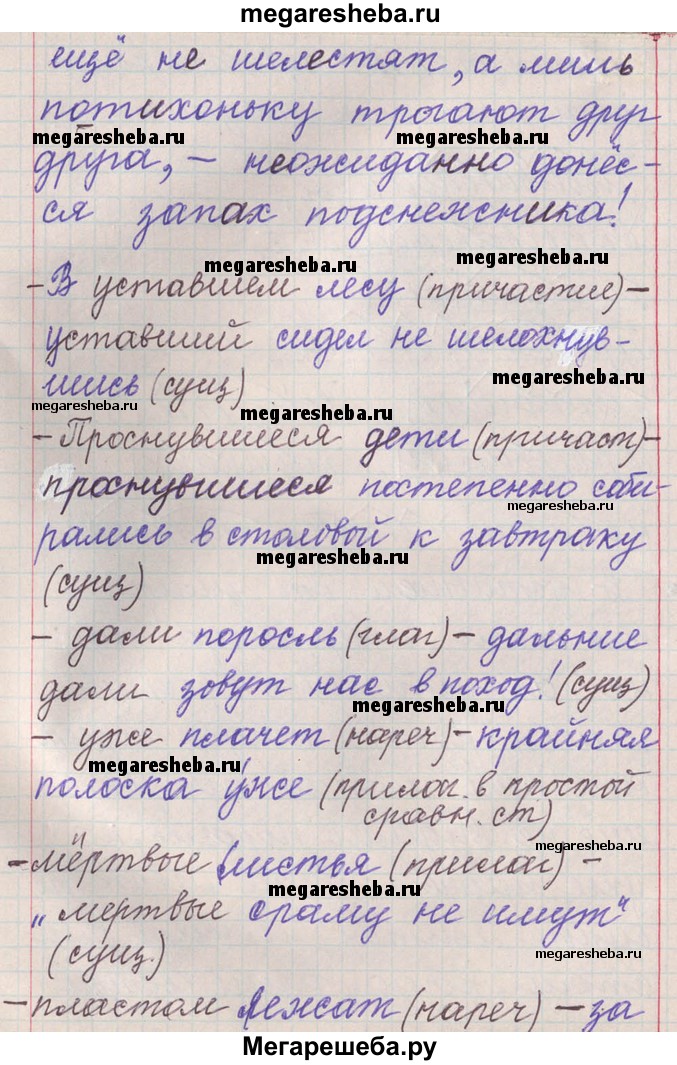 megaresheba.ru
ещё не шелестят, а лишь
потихоньку трогают друг
megaresheba.ru megaresheba.ru
друга, – неожиданно донёс-
ся запах подснежника!
megaresheba.ru megaresheba.ru
– В уставшем лесу (причастие) –
уставший сидел не шелохнув-
шись (сущ) megaresheba.ru
megaresheba.ru megaresheba.ru
– Проснувшиеся дети (причаст) –
проснувшиеся постепенно соби-
megaresheba.ru
рались в столовой к завтраку
megaresheba.ru
(сущ)
– дали поросль (глаг) – дальние
дали зовут нас в поход! (сущ)
megaresheba.ru
megaresheba.ru
– уже плачет (нареч) – крайняя
megaresheba.ru
полоска у́же (прилаг. в простой
сравн. ст)
megaresheba.ru
– мёртвые листья (прилаг) –
megaresheba.ru
„мертвые сраму не имут“
(сущ.) megaresheba.ru
– пластом лежат (нареч) – за
Мегарешеба.ру